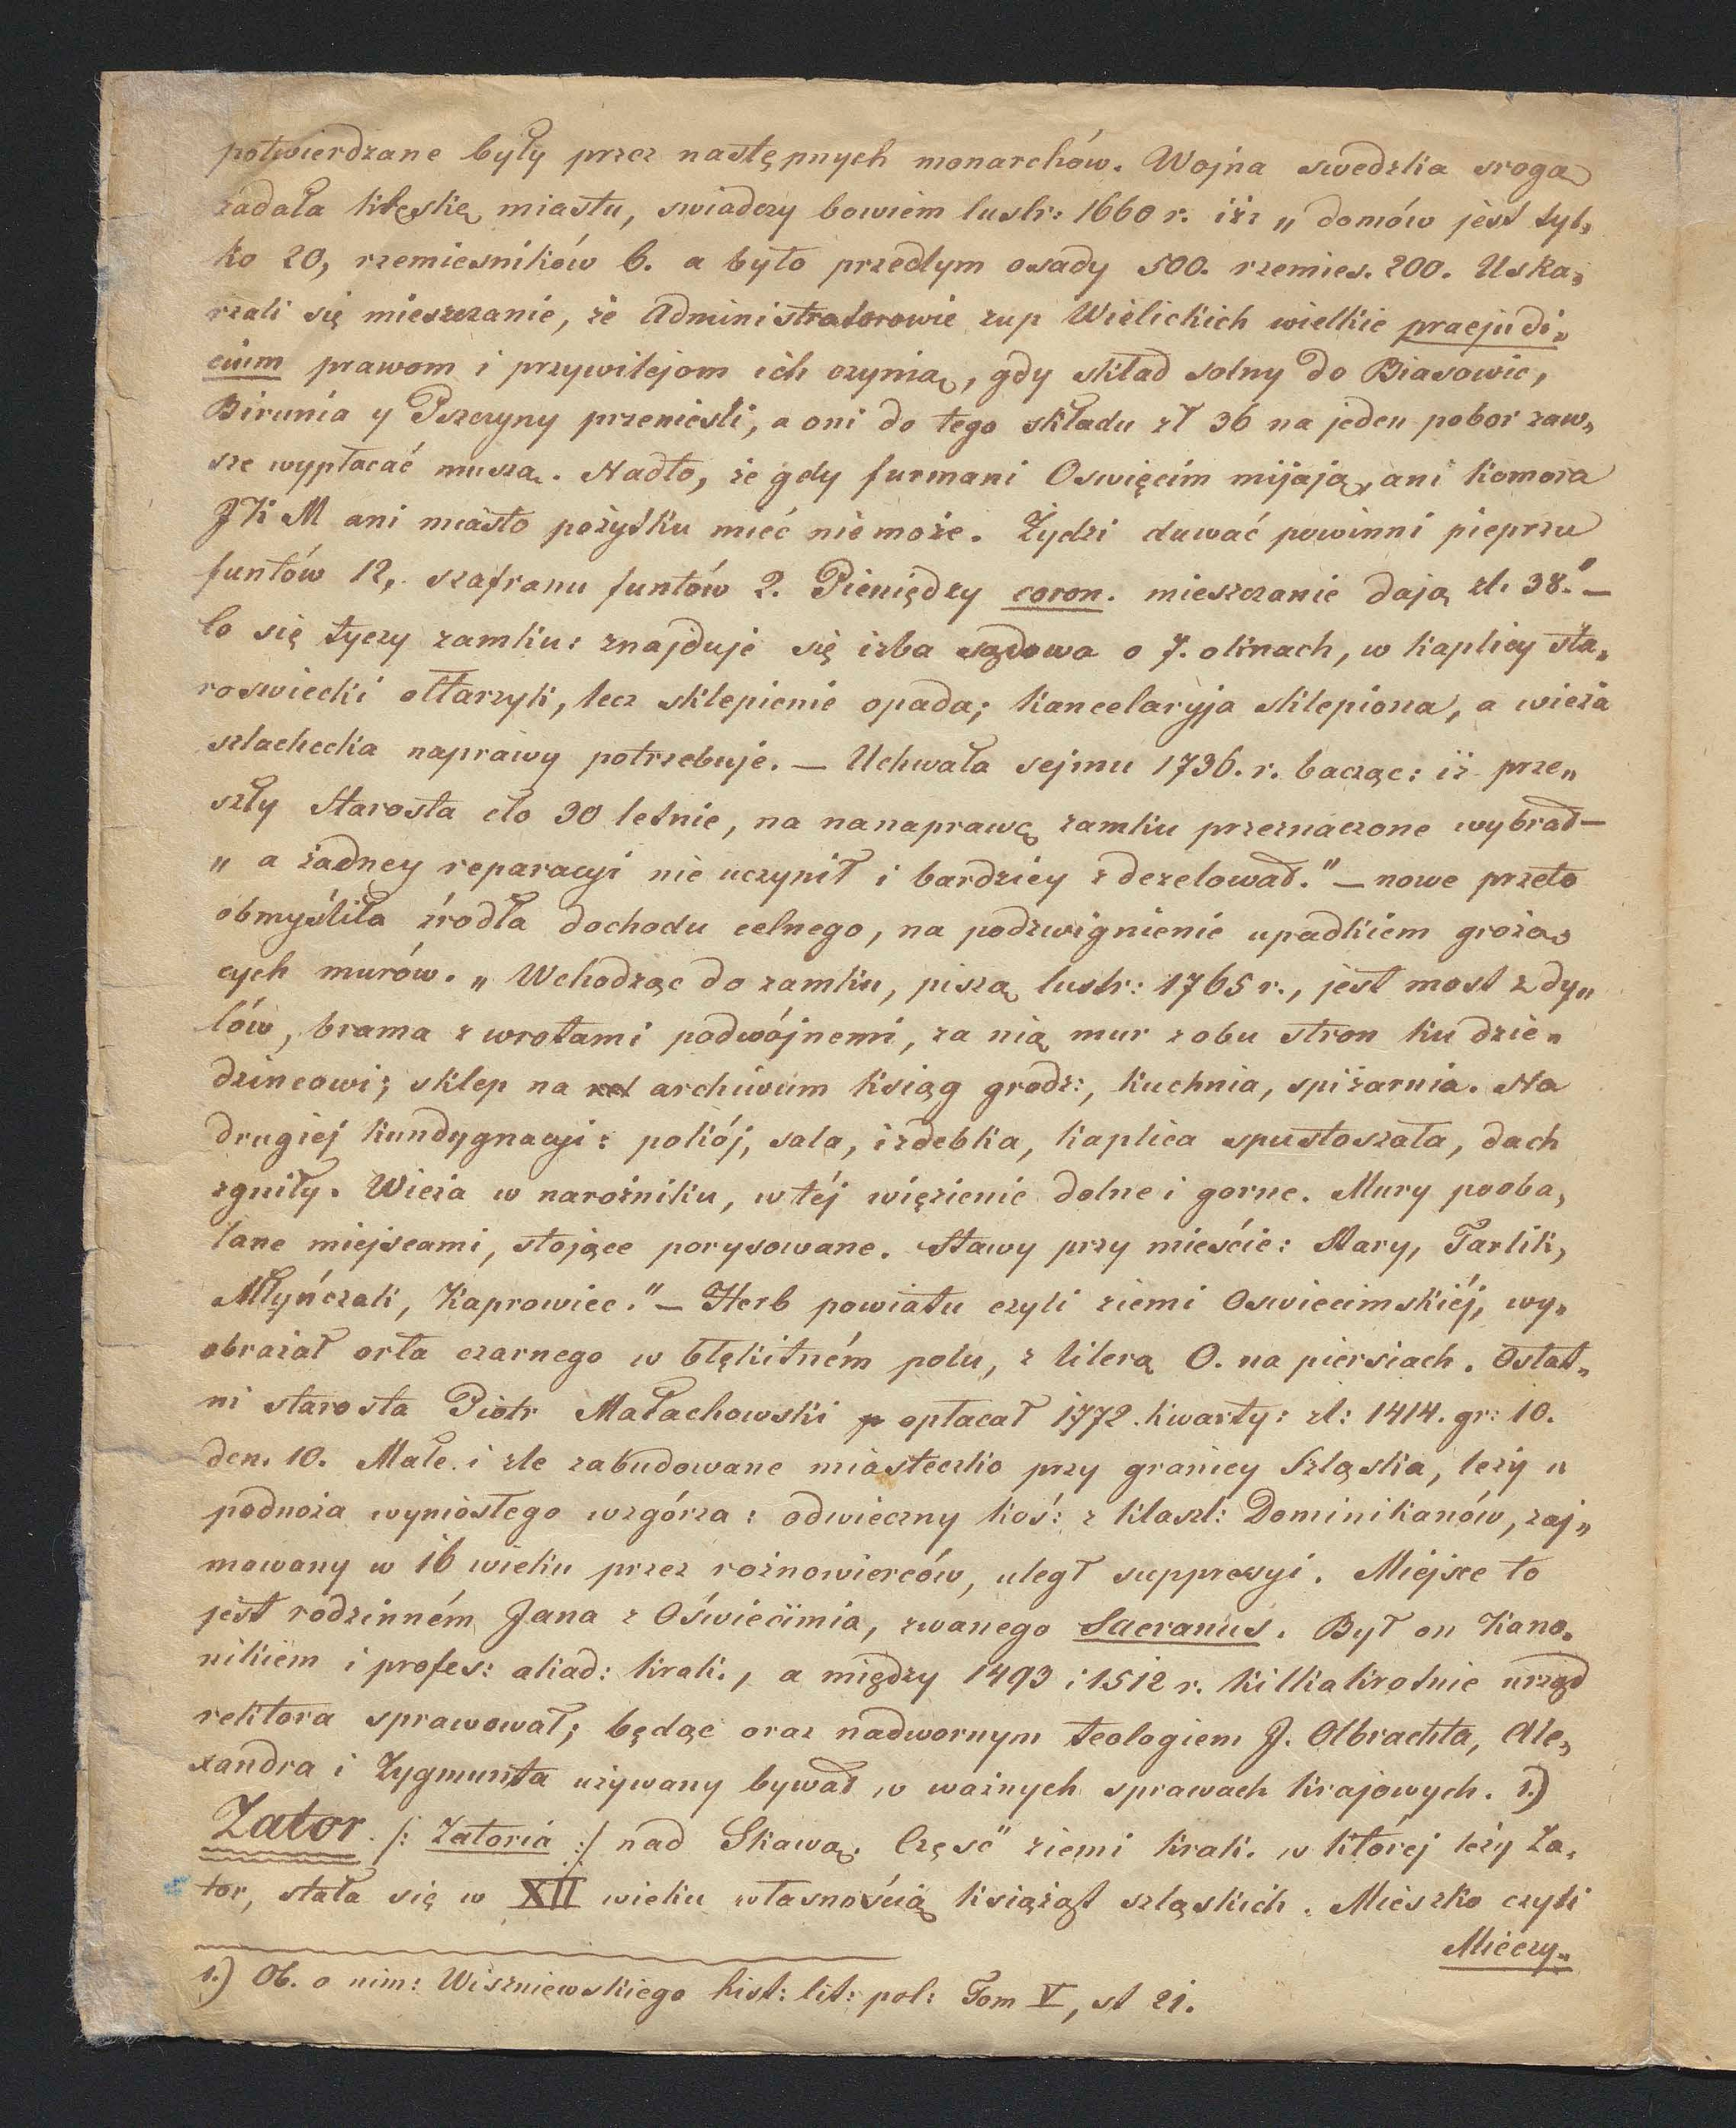 potwierdzane były przez następnych monarchów. Wojna swedzka sroga
zadała klęskę miastu, swiadczy bowiem lustr: 1660 r. iż „ domów jest tyl„
ko 20, rzemiesników 6. a było przedtym osady 500. rzemies. 200. Uska„
rzali się mieszczanie, że Administratorowie zup Wielickich wielkie praejudi„
cium prawom i przywilejom ich czynią, gdy skład solny do Biasowic,
Birunia y Pszczyny przeniesli, a oni do tego składu zł 36 na jeden pobor zaw„
sze wypłacać muszą. Nadto, że gdy furmani Oswięcim mijają, ani komora
JK M ani miasto pożytku mieć nie może. Żydzi dawać powinni pieprzu
funtów 12, szafranu funtów 2. Pieniędzy coron. mieszczanie dają zł. 38." —
Co się tyczy zamku: znajduje się izba sądowa o 7. oknach, w kaplicy sta„
roswiecki ołtarzyk, lecz sklepienie opada; kancelaryja sklepiona, a wieża
szlachecka naprawy potrzebuje. — Uchwała sejmu 1736. r. bacząc: iż prze„
szły Starosta cło 30 letnie, na nanaprawę zamku przeznaczone wybrał —
„ a żadney reparacyi nie uczynił i bardziey zdezelował." — nowe przeto
obmyśliła źrodła dochodu celnego, na podzwignienie upadkiem grożą„
cych murów. „ Wchodząc do zamku, piszą lustr: 1765 r., jest most z dy„
lów, brama z wrotami podwójnemi, za nią mur z obu stron ku dzie„
dzincowi; sklep na archivum ksiąg grodz:, kuchnia, spiżarnia. Na
drugiej kundygnacyi: pokój, sala, izdebka, kaplica spustoszała, dach
zgniły. Wieża w narożniku, w téj więzienie dolne i gorne. Mury pooba„
lane miejscami, stojące porysowane. Stawy przy mieście: Stary, Tarlik,
Młyńczak, Kaprowiec." — Herb powiatu czyli ziemi Oswiecimskiéj, wy„
obrażał orła czarnego w błękitném polu, z literą O. na piersiach. Ostat„
ni starosta Piotr Małachowski opłacał 1772. kwarty: zł: 1414. gr: 10.
den. 10. Małe i zle zabudowane miasteczko przy granicy Szląska, leży u
podnoża wyniosłego wzgórza: odwieczny koś: z klaszt: Dominikanów, zaj„
mowany w 16 wieku przez rożnowierców, uległ suppressyi. Miejsce to
jest rodzinném Jana z Oświecimia, zwanego Sacranus. Był on Kano„
nikiem i profes: akad: krak., a między 1493 i 1512 r. kilkakrotnie urząd
rektora sprawował; będąc oraz nadwornym teologiem J. Olbrachta, Ale„
xandra i Zygmunta używany bywał w ważnych sprawach krajowych. 1.)
Zator. /: Zatoria :/ nad Skawą. Częsć ziemi krak. w której leży Za„
tor, stała się w XII wieku własnością książąt szląskich. Mieszko czyli
Mieczy„
1.) Ob. o nim: Wiszniewskiego hist: lit: pol: Tom V, st 21.